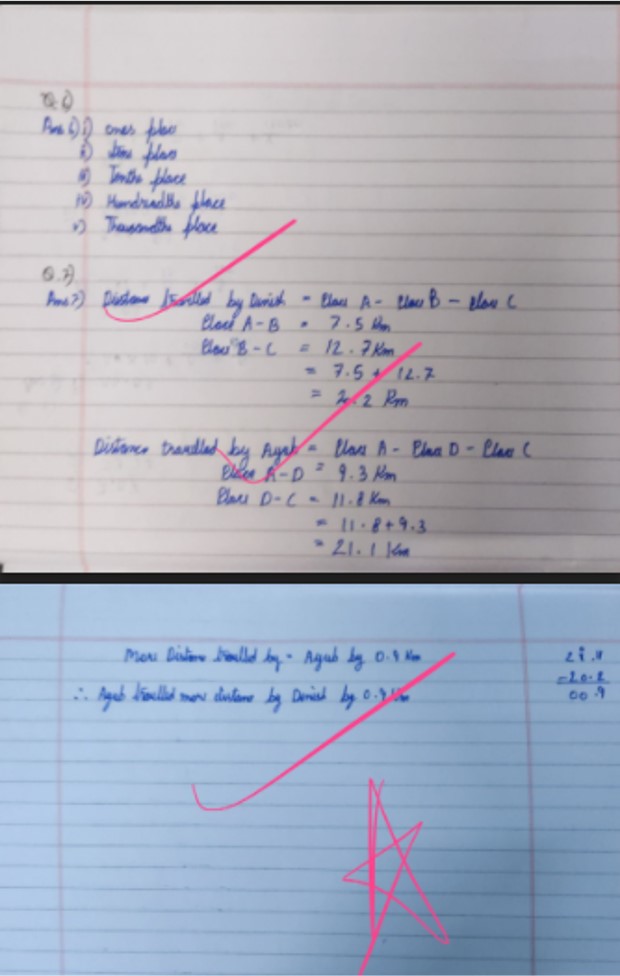 Q.6)
Ans.6) i) ones place
ii) tens place
iii) Tenths place
iv) Hundredths place
v) Thousandths place
Q.7)
Ans 7) Distance travelled by Danish = Place A - Place B - Place C
Place A-B = 7.5 Km
Place B-C = 12.7 Km
= 7.5 + 12.7
= 20.2 Km
Distance travelled by Ayub = Place A - Place D - Place C
Place A-D = 9.3 Km
Place D-C = 11.8 Km
= 11.8 + 9.3
= 21.1 Km
More Distance travelled by - Ayub by 0.9 Km
∴ Ayub travelled more distance by Danish by 0.9 Km
-20.2
00.9